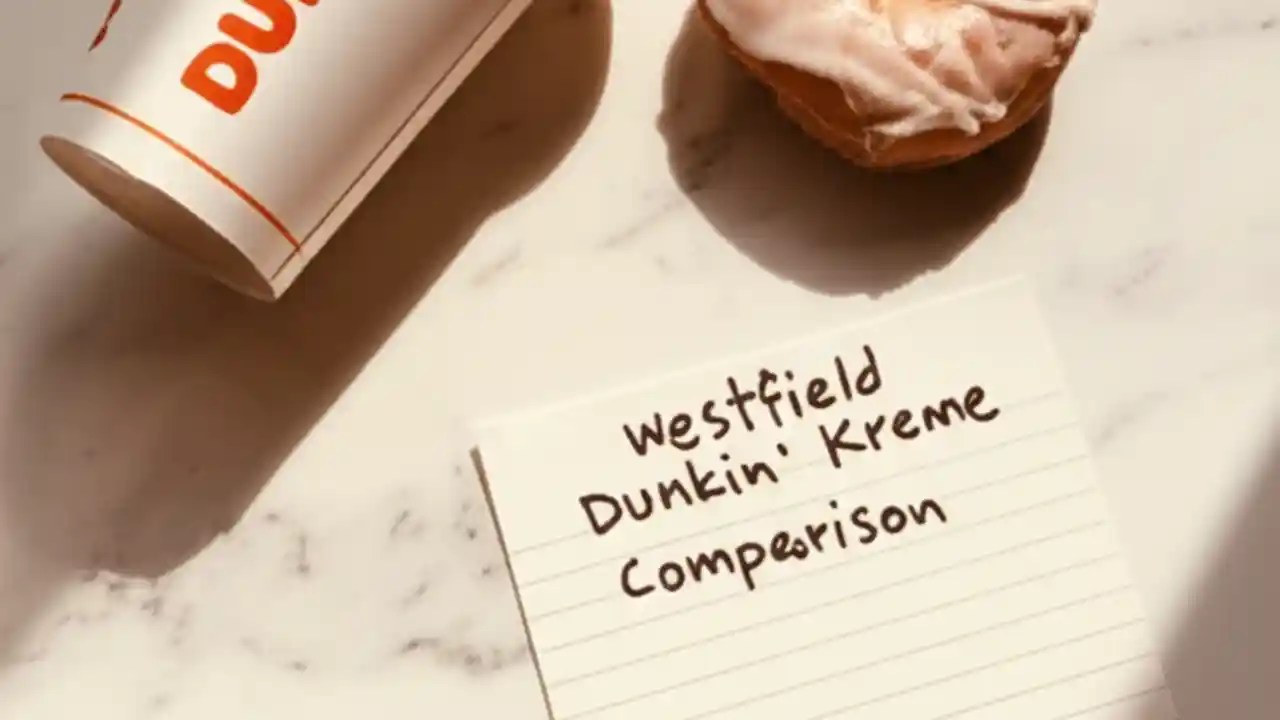 DU
Westfield
Dunkin' Kreme
Comparison